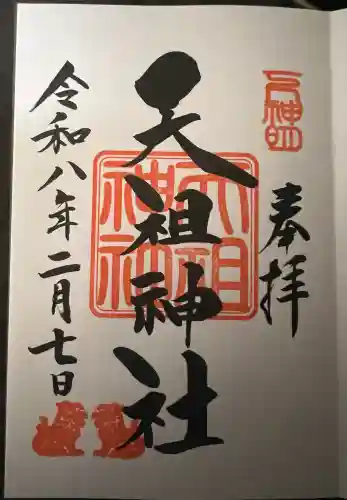 奉拝
天祖神社
令和八年二月七日
天祖神社